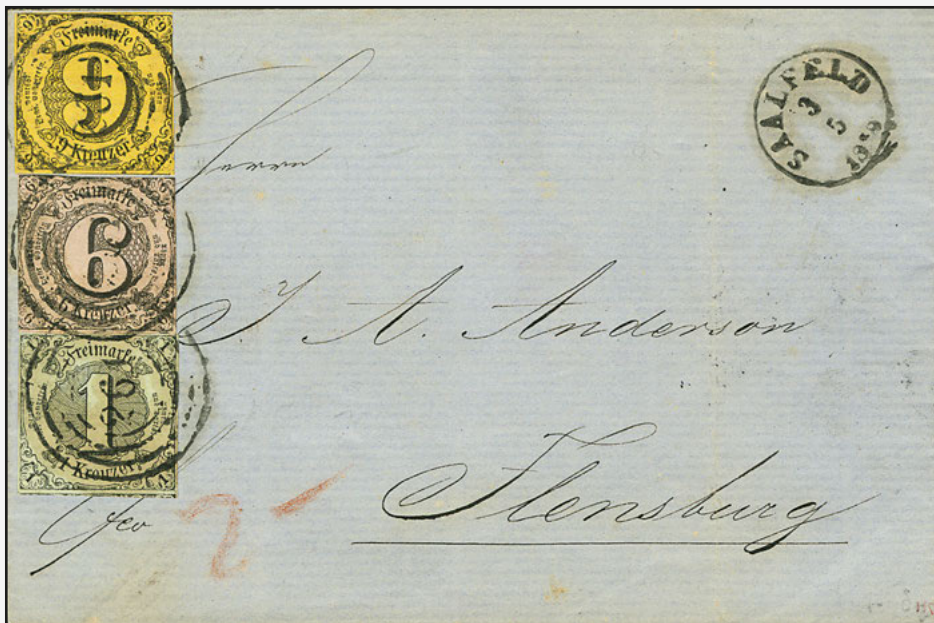 Freimarke
9
9 Kreuzer
Freimarke
6
6 Kreuzer.
Freimarke
1
1 Kreuzer.
SAALFELD
3
5
1859
Herrn
J. A. Anderson
Flensburg
fco
2